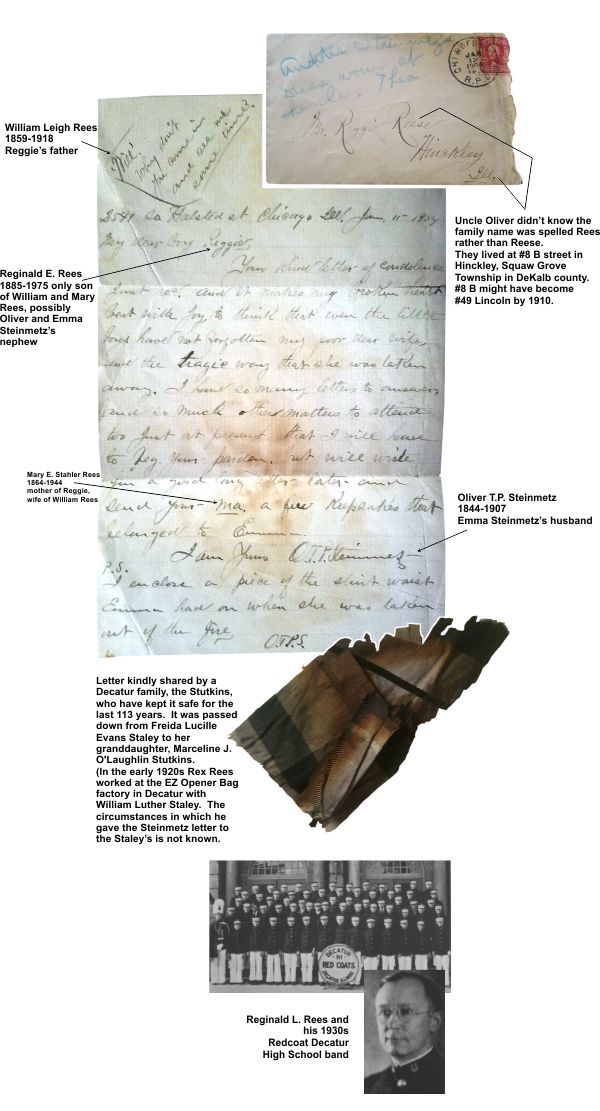 William Leigh Rees
1859-1918
Reggie's father
"Will"
Why don't
you come in
and see me
some time?
JAN
12
R.P.O.
Mr. Reggie Reese
Hinckley
Ill.
Uncle Oliver didn't know the
family name was spelled Rees
rather than Reese.
They lived at #8 B street in
Hinckley, Squaw Grove
Township in DeKalb county.
#8 B might have become
#49 Lincoln by 1910.
2541 So Halsted st Chicago Ill. Jan. 11 - 1904
My dear boy Reggie
Your kind letter of condolence
Just rec. and it makes my broken heart
beat with joy to think that even the little
boys have not forgotten my poor dear wife
and the tragic way that she was taken
away. I have so many letters to answer
and so much other matters to attend
too just at present that I will have
to beg your pardon. but will write
you a good long letter later and
send your ma. a few keepsakes that
belonged to Emma.
I am Yours O.T.P. Steinmetz
P.S.
I enclose a piece of the shirt waist
Emma had on when she was taken
out of the fire
O.T.P.S.
Reginald E. Rees
1885-1975 only son
of William and Mary
Rees, possibly
Oliver and Emma
Steinmetz's
nephew
Mary E. Stahler Rees
1864-1944
mother of Reggie,
wife of William Rees
Oliver T.P. Steinmetz
1844-1907
Emma Steinmetz's husband
Letter kindly shared by a
Decatur family, the Stutkins,
who have kept it safe for the
last 113 years.  It was passed
down from Freida Lucille
Evans Staley to her
granddaughter, Marceline J.
O'Laughlin Stutkins.
(In the early 1920s Rex Rees
worked at the EZ Opener Bag
factory in Decatur with
William Luther Staley.  The
circumstances in which he
gave the Steinmetz letter to
the Staley's is not known.
DECATUR
HI
RED COATS
DECATUR ILLINOIS
Reginald L. Rees and
his 1930s
Redcoat Decatur
High School band